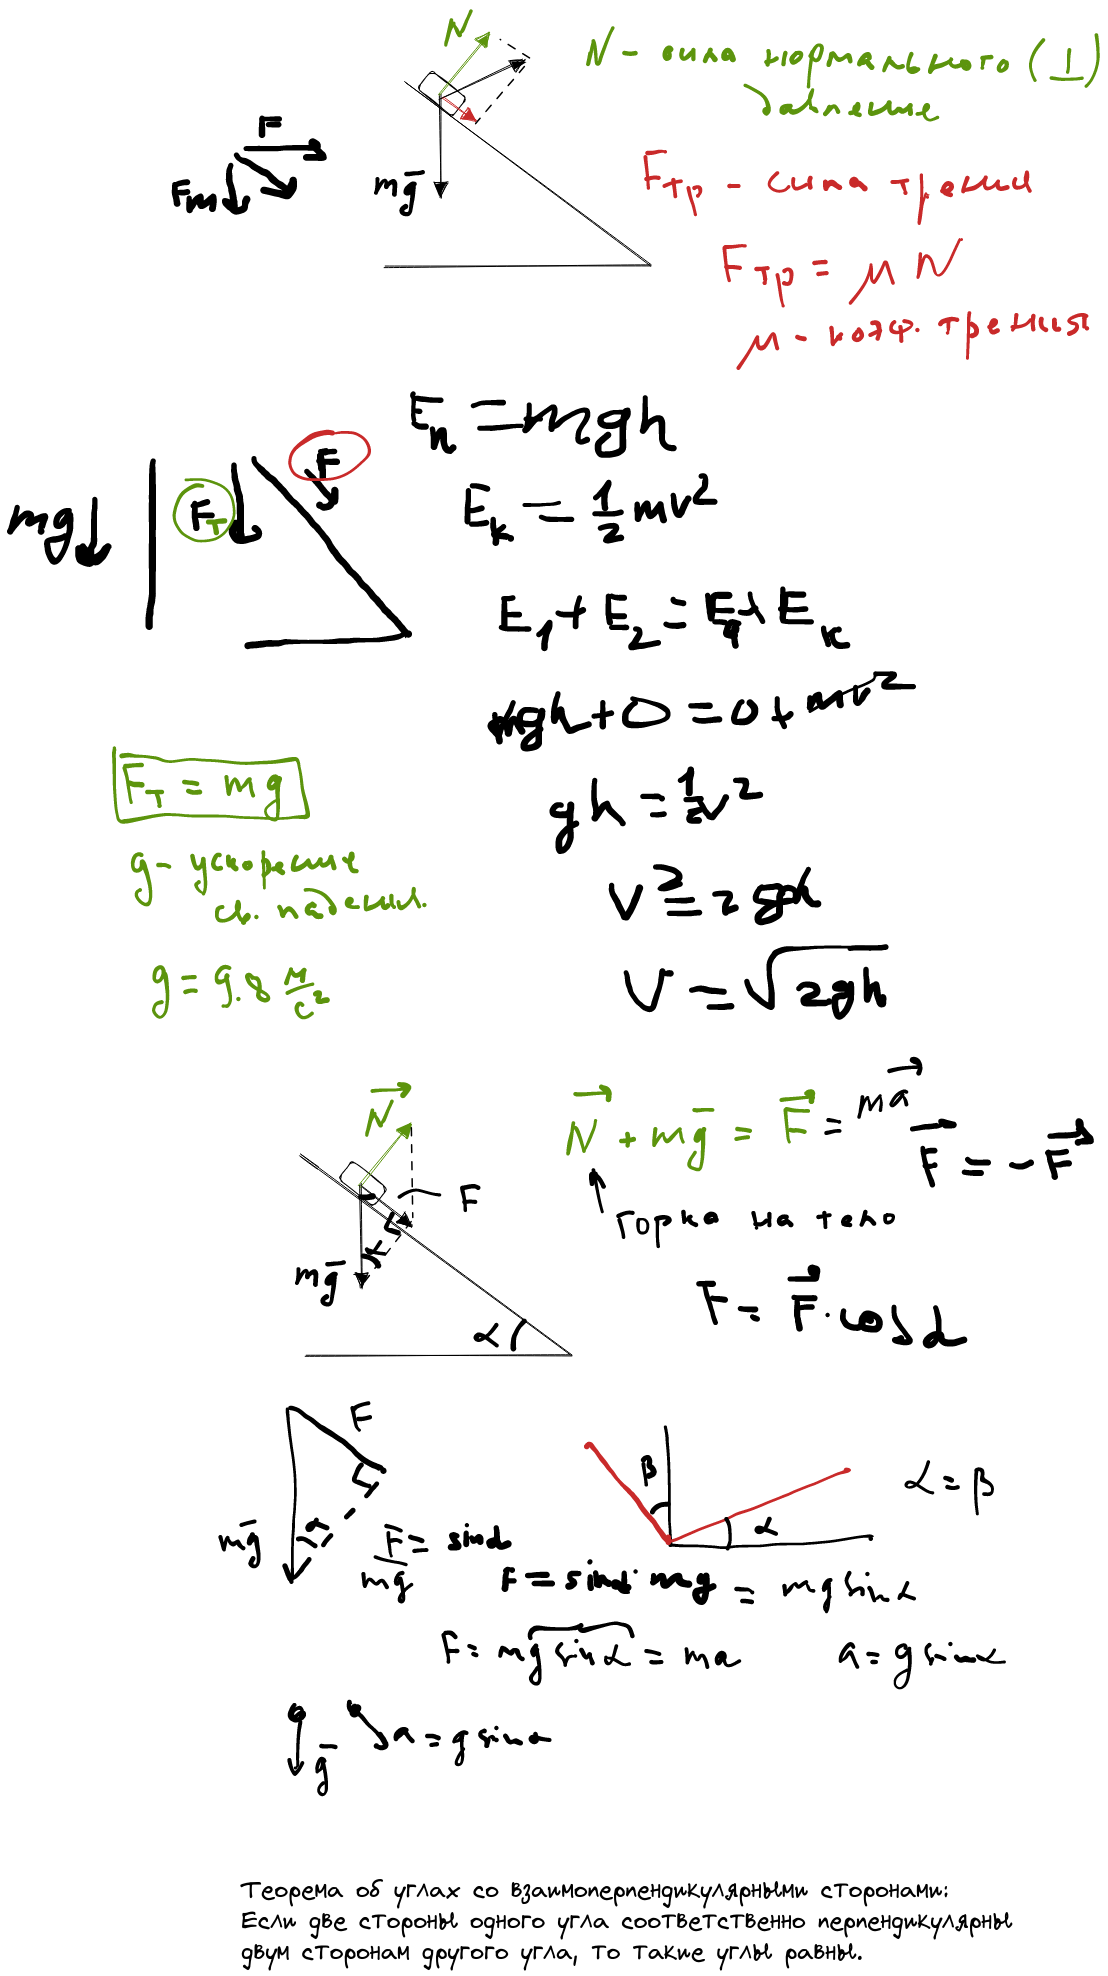 N
N - сила нормального (⊥)
давление
F
Fт
mg̅
Fтр - сила трения
Fтр = μ N
μ - коэф. трения
Eп = mgh
F
mg
Fт
Eк = 1/2 mv²
E₁ + E₂ = Eп + Eк
mgh + 0 = 0 + mv²
Fт = mg
gh = 1/2 v²
g - ускорение
св. падения.
v² = 2gh
g = 9.8 м/с²
v = √2gh
N⃗
N⃗ + mg̅ = F⃗ = ma⃗
F⃗ = -F⃗
F
горка на тело
mg̅
α
α
F = F⃗ · cos α
F
β
α
α = β
mg̅
α
F/mg = sin α
F = sin α · mg = mg sin α
F = mg sin α = ma
a = g sin α
g̅
a = g sin α
Теорема об углах со взаимоперпендикулярными сторонами:
Если две стороны одного угла соответственно перпендикулярны
двум сторонам другого угла, то такие углы равны.